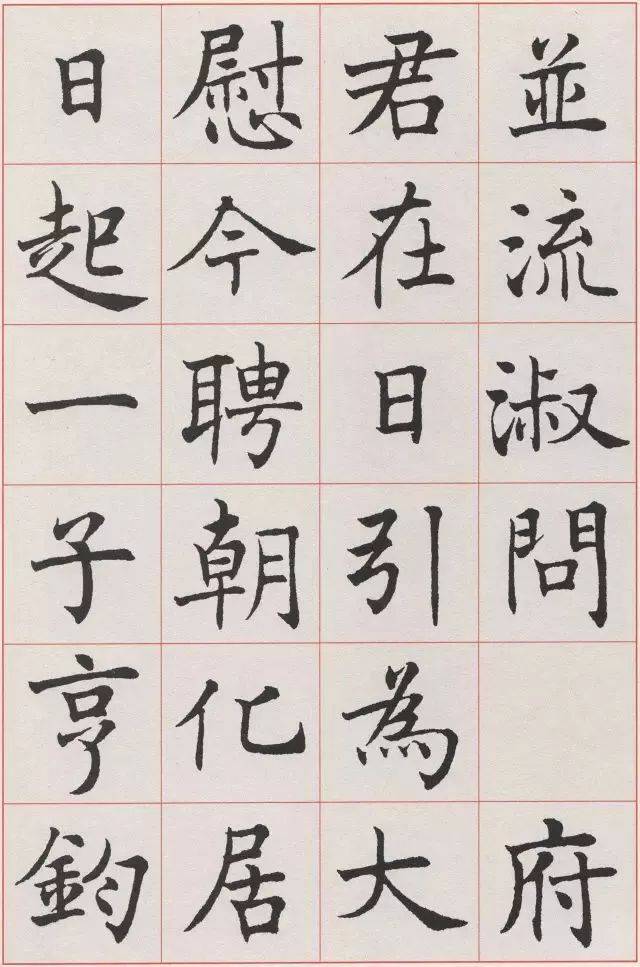 並流淑問府
君在日引為大
慰今聘朝化居
日起一子亨鈞